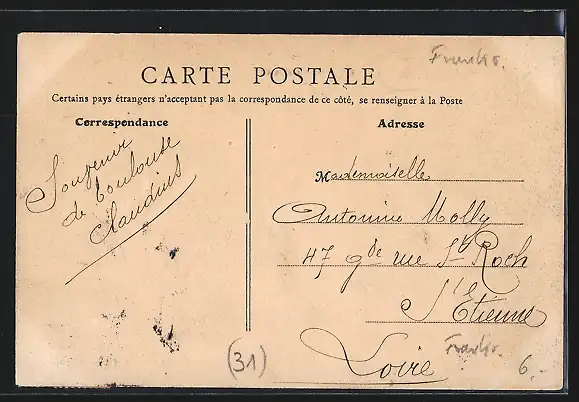 Frankr.
CARTE POSTALE
Certains pays étrangers n'acceptant pas la correspondance de ce côté, se renseigner à la Poste
Correspondance
Souvenir
de Toulouse
Claudius
Adresse
Mademoiselle
Antonine Molly
47 gde rue St Roch
St Etienne
Loire
(31)
Frankr.
6.-